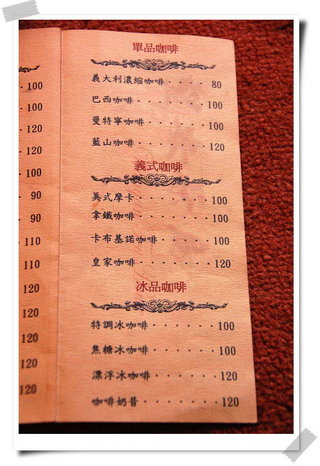 100
100
120
120
100
90
90
110
110
120
120
120
120
單品咖啡
義大利濃縮咖啡····· 80
巴西咖啡········100
曼特寧咖啡·······100
藍山咖啡········120
義式咖啡
美式摩卡········100
拿鐵咖啡········100
卡布基諾咖啡······100
皇家咖啡········120
冰品咖啡
特調冰咖啡·······100
焦糖冰咖啡·······100
漂浮冰咖啡·······120
咖啡奶昔········120